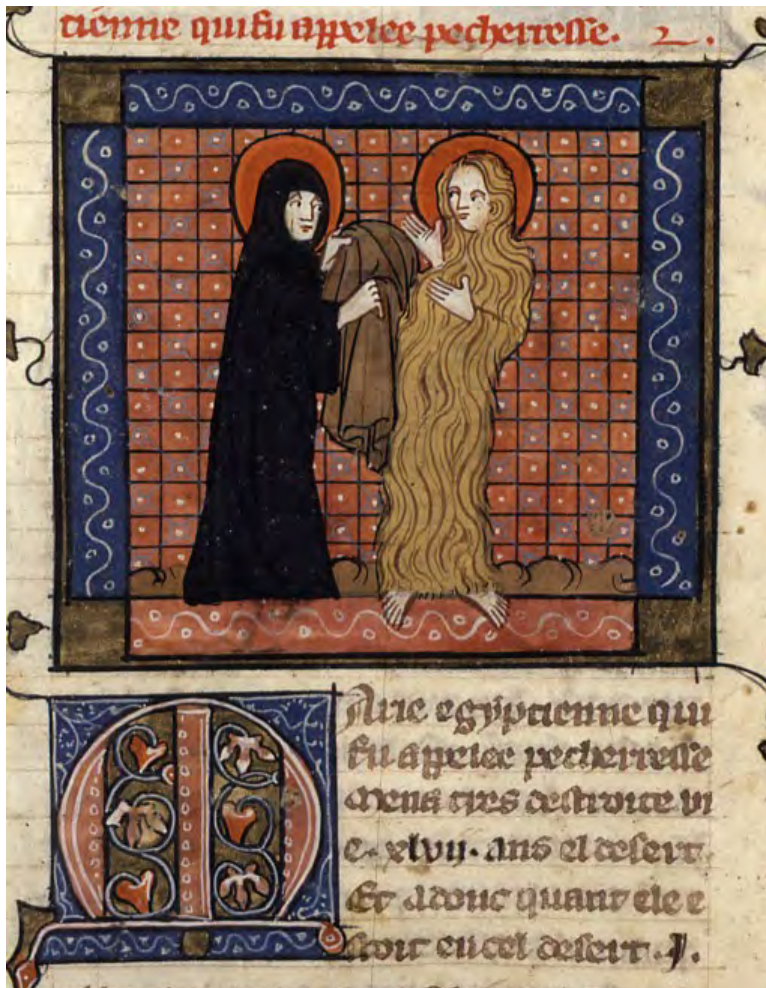 cienne qui fu appelee pecherresse. 2.
Marie egyptienne qui
fu appelee pecherresse
mena tres destroite vi
e. xlvii. ans el desert.
Et adonc quant ele e
stoit en cel desert. j.